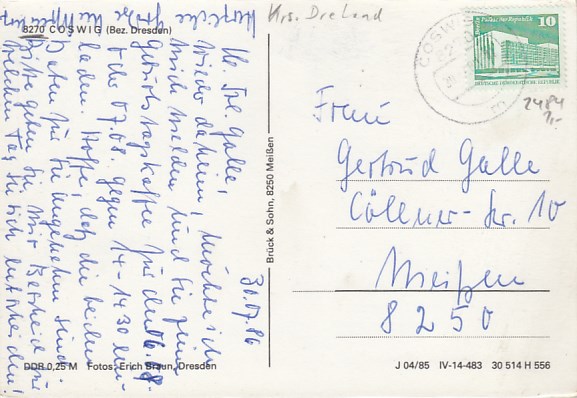 8270 COSWIG (Bez. Dresden)
Krs. Dresden
30.07.86
Frl. Galle!
Wieder daheim, möchte ich
mich melden und Sie zum
Geburtstagskaffee für den 06.08.
+ den 07.08. gegen 14-14.30 ein-
laden. Hoffe, daß die beiden
Daten für Sie angenehm sind.
Bitte geben Sie mir Bescheid für
welchen Tag Sie sich entscheiden!
Herzliche Grüße
DDR 0,25 M Fotos: Erich Braun, Dresden
Brück & Sohn, 8250 Meißen
COSWIG
Palast der Republik
10
DEUTSCHE DEMOKRATISCHE REPUBLIK
2484
Frau
Gertrud Galle
Cöllner-Str. 10
Meißen
8250
J 04/85 IV-14-483 30 514 H 556